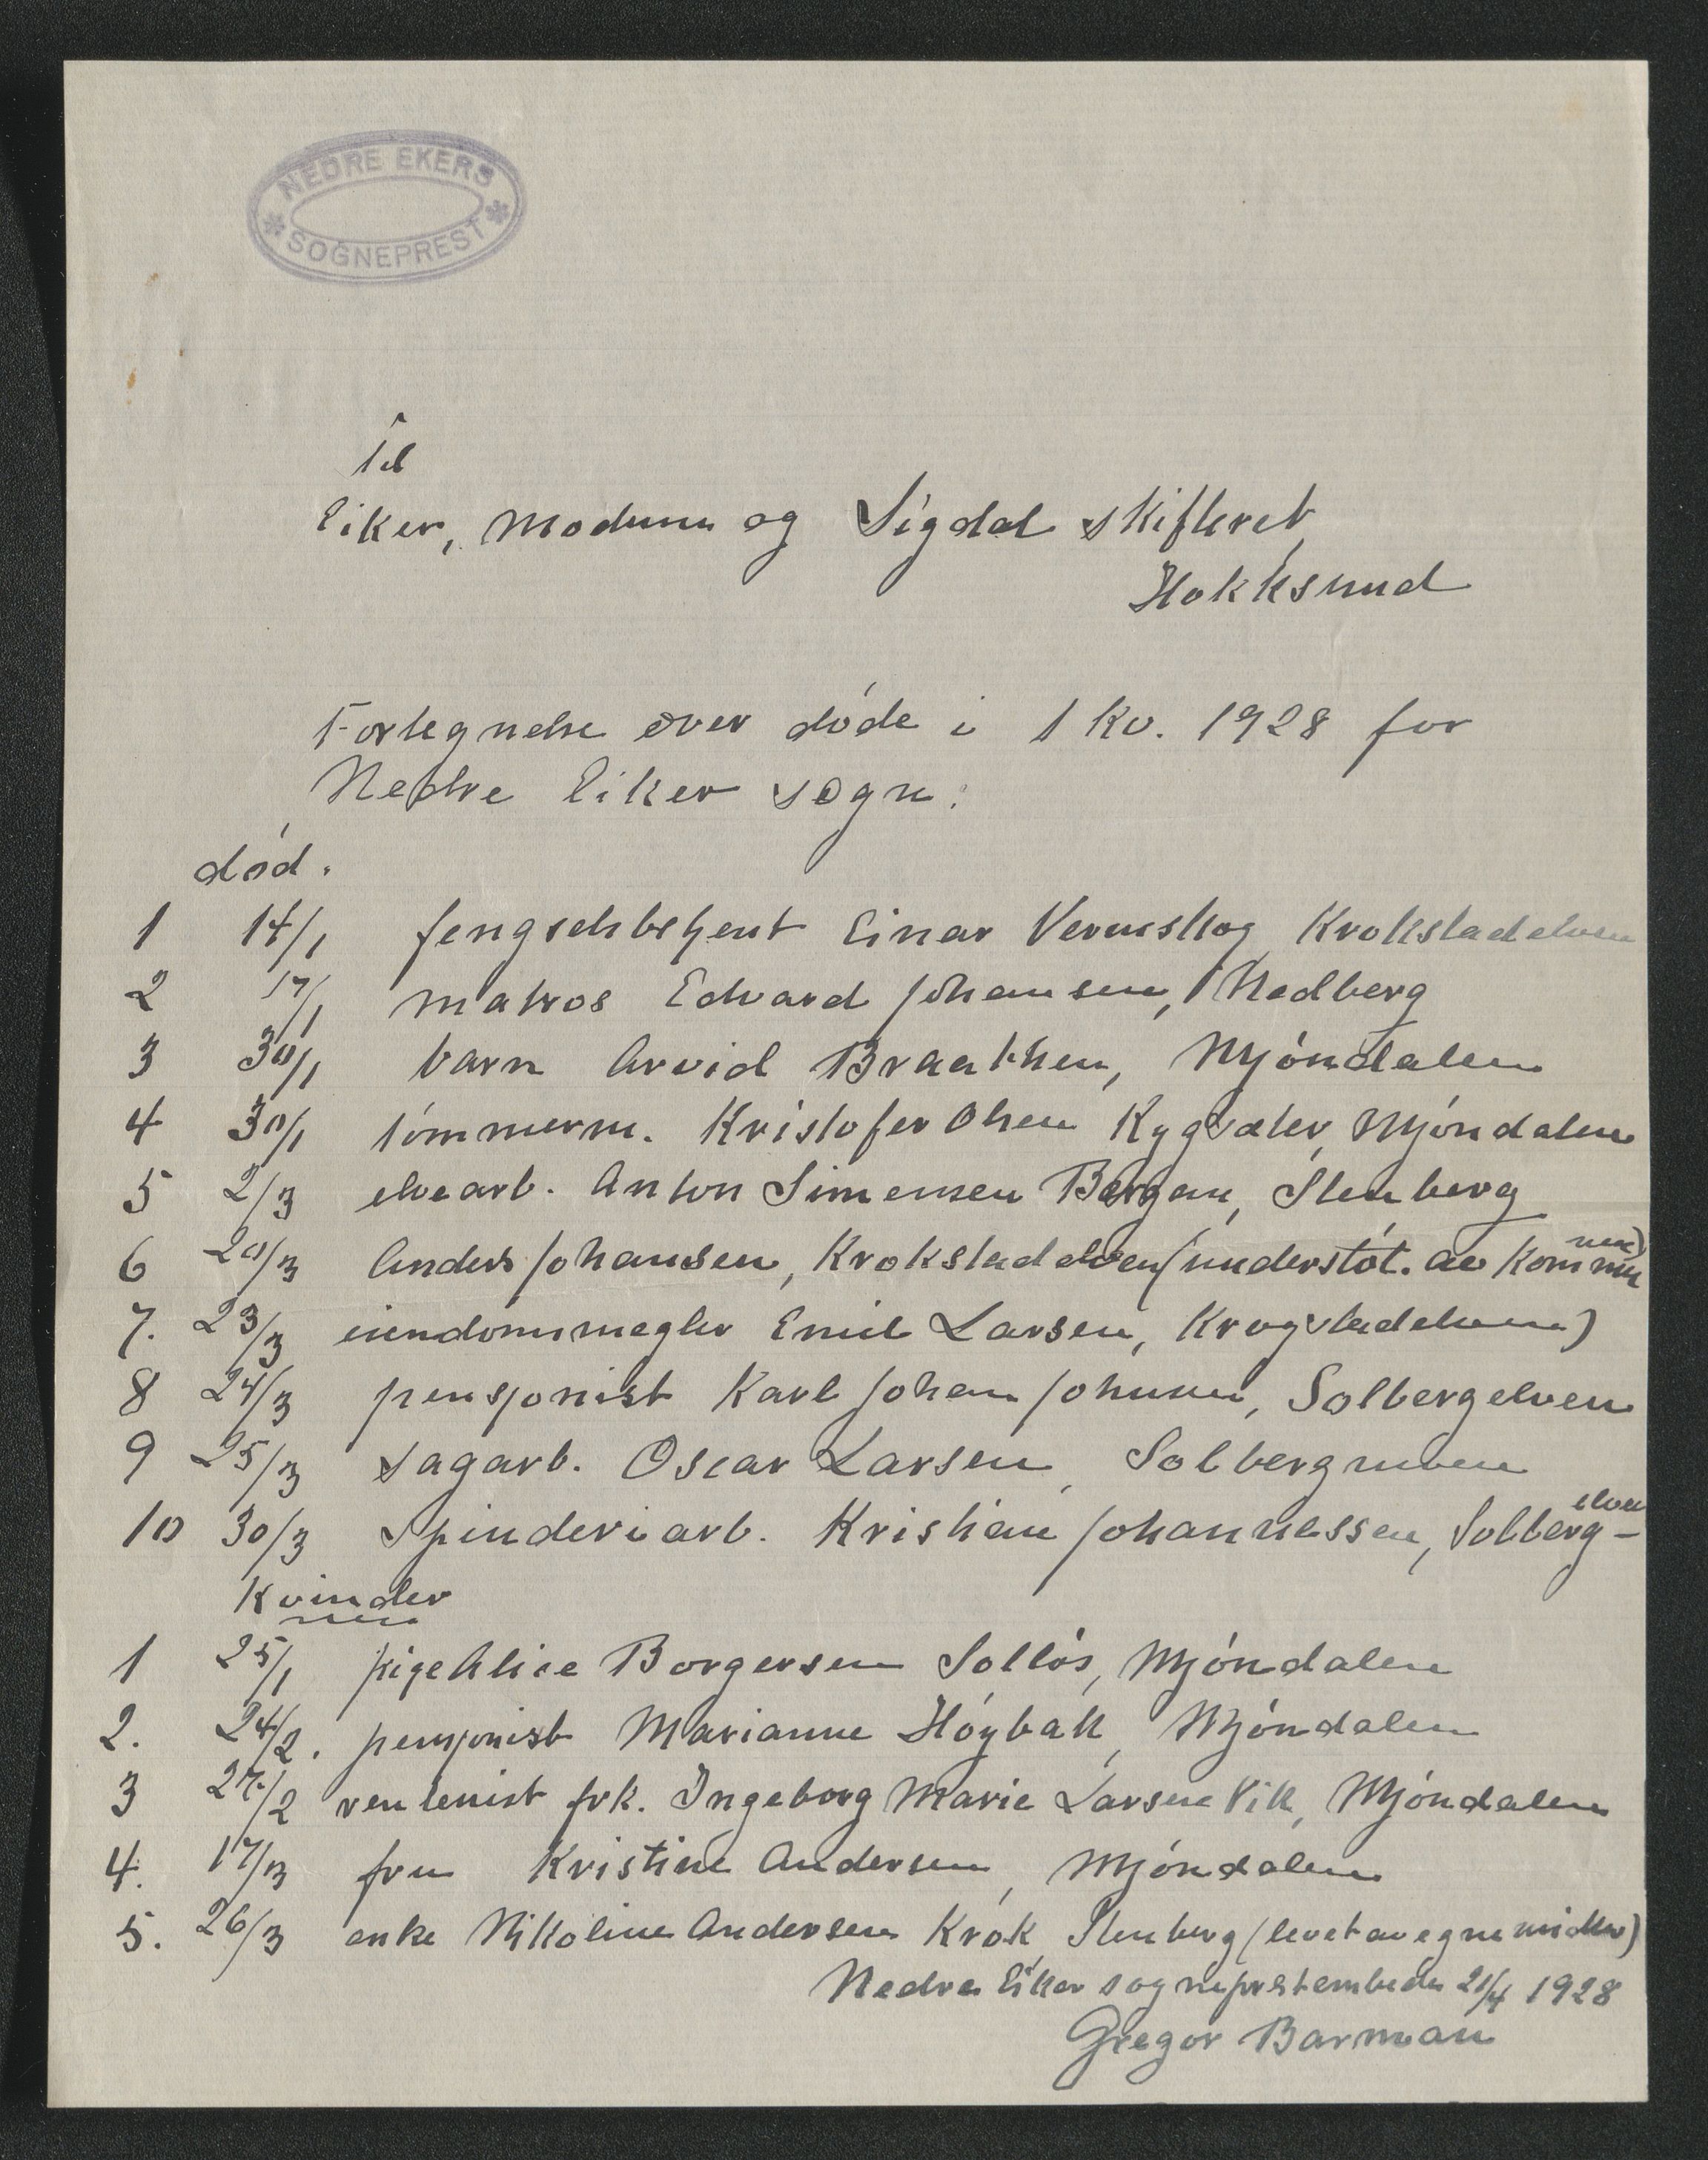 NEDRE EKERS
SOGNEPREST
Til
Eiker, Modum og Sigdal skifteret,
Hokksund
Fortegnelse over døde i 1 kv. 1928 for
Nedre Eiker sogn:
død.
1 14/1 fengselsbetjent Einar Vermskog Krokstadelven
2 17/1 matros Edvard Johansen, Nedberg
3 30/1 barn Arvid Braathen, Mjøndalen
4 30/1 tømmerm. Kristofer Olsen Mjøndalen
5 2/3 elvearb. Anton Simensen Bergan, Stenberg
6 20/3 Anders Johansen, Krokstadelven (understøt. av kommu
nen)
7. 23/3 eiendomsmegler Emil Larsen, Krogstadelven)
8 24/3 pensjonist Karl Johan Johnsen, Solbergelven
9 25/3 sagarb. Oscar Larsen, Solbergmoen
10 30/3 Spinderiarb. Kristian Johannessen, Solberg-
elven
Kvinder
1 25/1 pige Alice Borgersen Solløs, Mjøndalen
2. 24/2. pensjonist Marianne Høybak, Mjøndalen
3 27/2 rentenist frk. Ingeborg Marie Larsen Vik, Mjøndalen
4. 17/3 fru Kristine Andersen, Mjøndalen
5. 26/3 enke Nikoline Andersen Krok, Stenberg (levet av egne midler)
Nedre Eiker sogneprestembede 21/4 1928
Gregor Barman